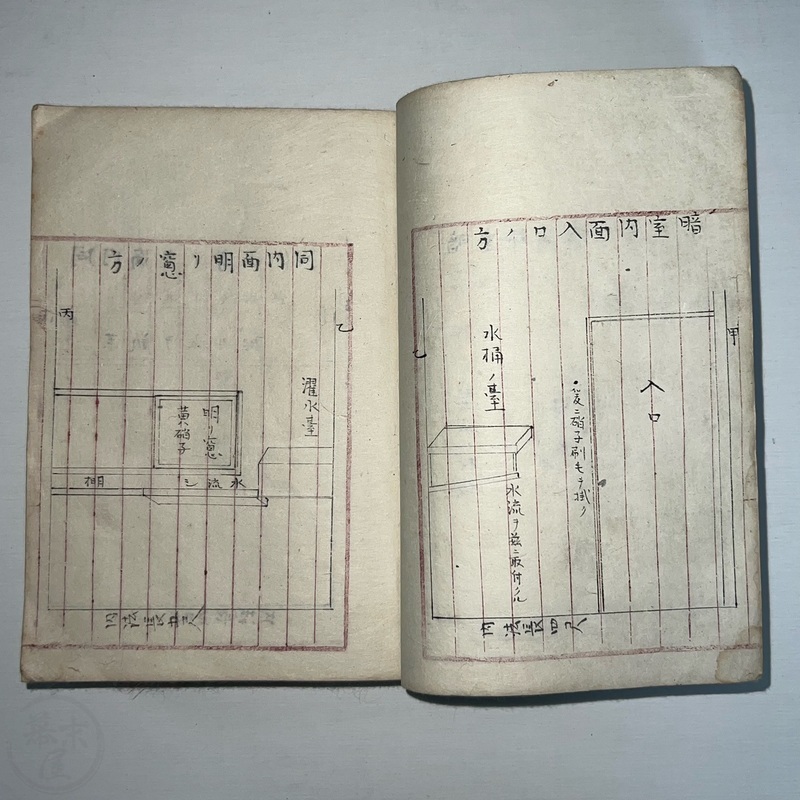 暗室内面入口ノ方
甲
入口
爰ニ硝子刷毛ヲ掛ク
水桶ノ臺
水流ヲ茲ニ取付ル
乙
内法長四尺
同内面明リ窓ノ方
乙
濯水臺
明リ窓
黄硝子
水流シ
棚
丙
内法長五尺
幕末屋